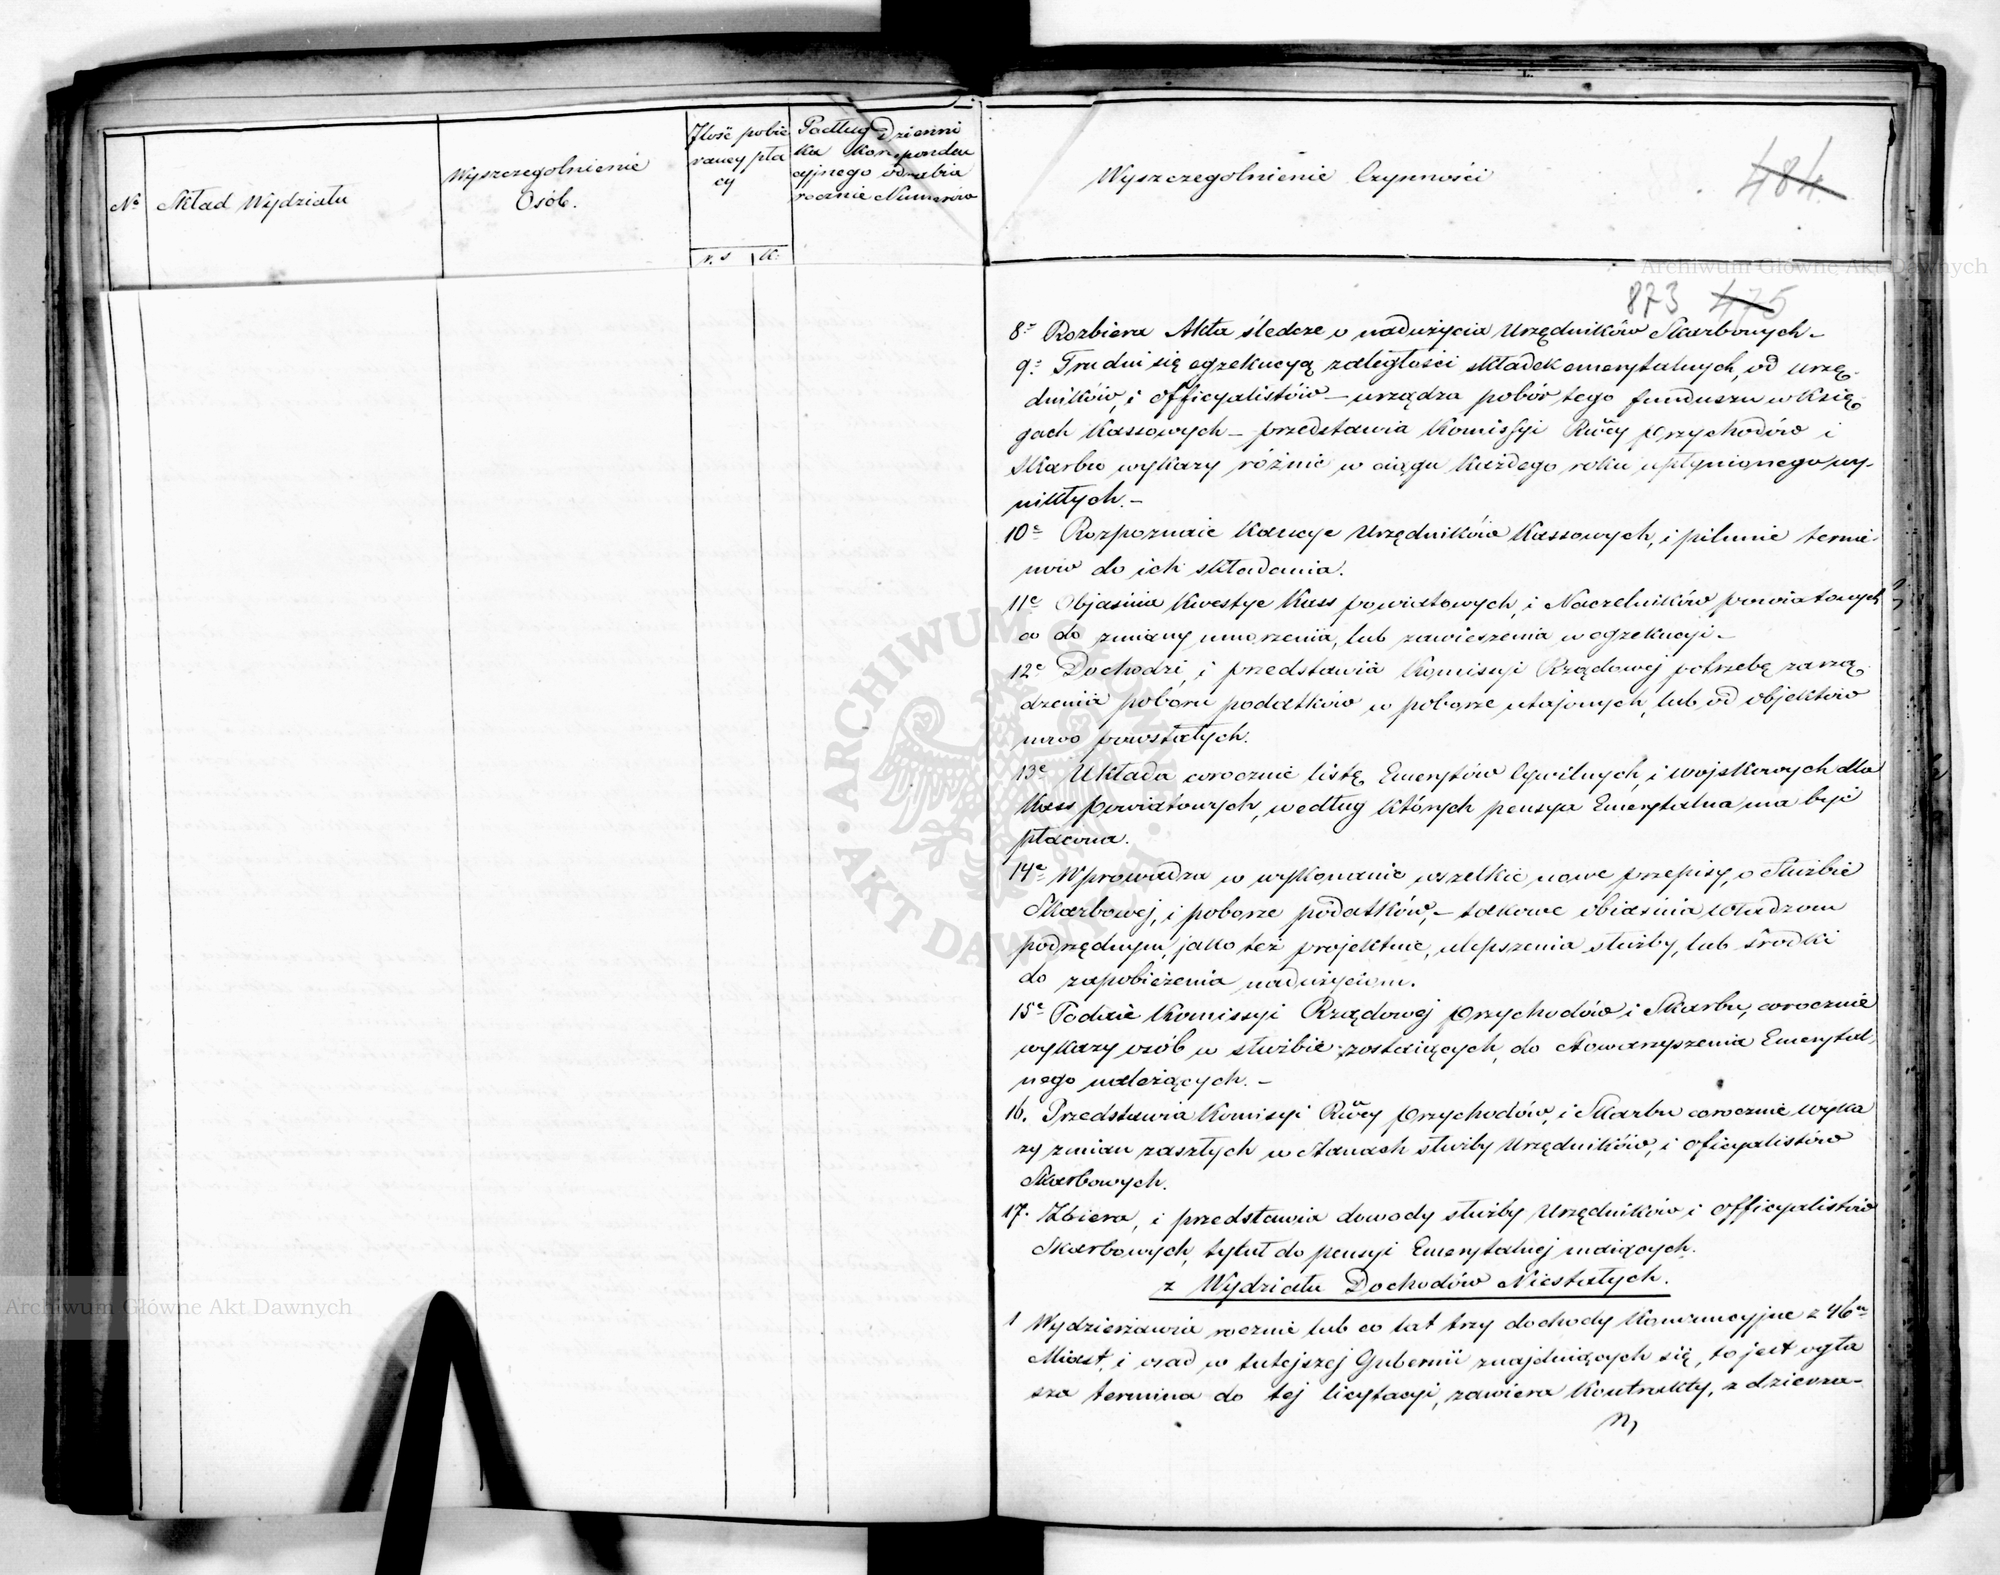 No
Skład Wydziału
Wyszczegolnienie
Osób.
Ilość pobie
raney pła
cy
r. s. k.
Podług Dzienni
ka Korrponden
cyjnego odrabia
rocznie Numerów
Wyszczegolnienie Czynności
484
873 475
8e Rozbiera Akta śledcze o nadużycia Urzędników Skarbowych –
9e Trudni się egzekucyą zaległości składek emerytalnych, od urzę-
dników, i officyalistów – urządza pobór tego funduszu w Księ-
gach Kassowych – przedstawia Komissyi Rwéy przychodów i
Skarbu wykazy różnic w ciągu każdego roku upłynionego wy-
nikłych. –
10e Rozpoznaie Kaucye Urzędników Kassowych, i pilnuie termi-
nów do ich składania.
11e Objaśnia Kwestye Kass powiatowych, i Naczelników powiatowych
co do zmiany umorzenia, lub zawieszenia w egzekucyi –
12e Dochodzi, i przedstawia Komissyi Rządowej potrzebę zarzą-
dzenia poboru podatków w poborze utajonych, lub od objektów
nowo powstałych.
13e Układa corocznie listę Emerytów Cywilnych, i wojskowych dla
Kass powiatowych, według których pensya Emerytalna ma być
płacona.
14e Wprowadza w wykonanie wszelkie nowe przepisy, o Służbie
Skarbowej, i poborze podatków, – takowe obiaśnia władzom
podrzędnym, jako też projektuie, ulepszenia służby, lub środki
do zapobieżenia nadużyciom.
15e Podaie Komissyi Rządowej przychodów i Skarbu, corocznie
wykazy osób w służbie zostaiących, do Stowarzyszenia Emerytal-
nego należących. –
16. Przedstawia Komisyi Rwéy przychodów, i Skarbu corocznie wyka
zy zmian zaszłych w Stanach służby Urzędników, i oficyalistów
Skarbowych.
17. Zbiera, i przedstawia dowody służby Urzędników i officyalistów
Skarbowych, tytuł do pensyi Emerytalnej maiących.
z Wydziału Dochodów Niestałych.
1 Wydzierżawia rocznie lub co lat trzy dochody Konsumcyjne z 46u
Miast, i osad w tutejszej Gubernii znajduiących się, to jest ogła
sza termina do tej licytacyi, zawiera Kontrakty, z dzierża-
Archiwum Główne Akt Dawnych
Archiwum Główne Akt Dawnych
ARCHIWUM GŁÓWNE AKT DAWNYCH